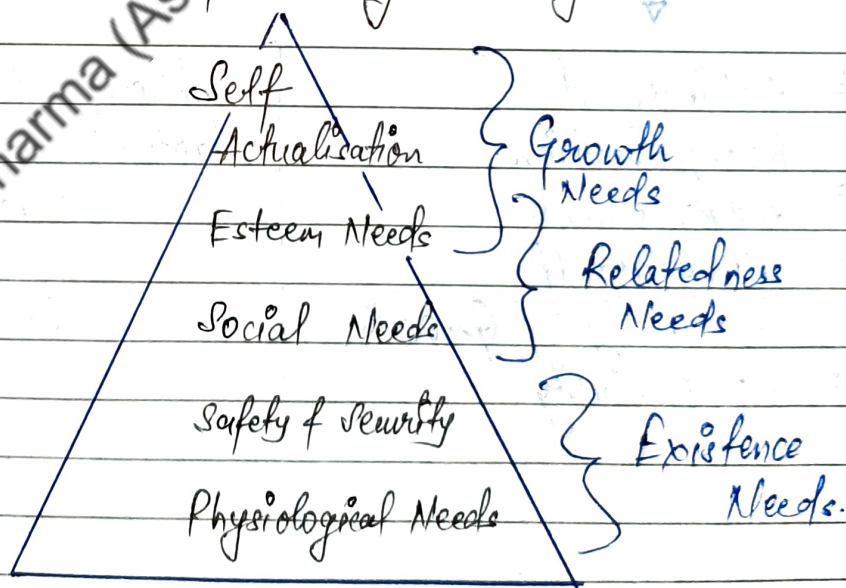 harma (As
Self
Actualisation
Esteem Needs
Social Needs
Safety & Security
Physiological Needs
Growth
Needs
Relatedness
Needs
Existence
Needs.